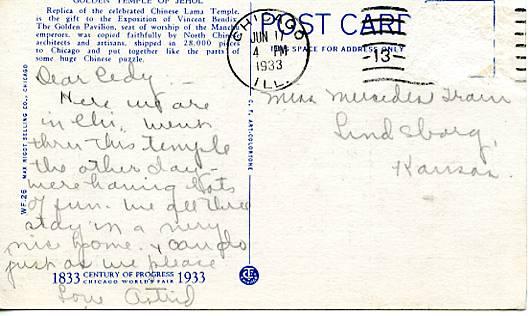 GOLDEN TEMPLE OF JEHOL
Replica of the celebrated Chinese Lama Temple,
is the gift to the Exposition of Vincent Bendix.
The Golden Pavilion, seat of worship of the Manchu
emperors, was copied faithfully by North China
architects and artisans, shipped in 28,000 pieces
to Chicago and put together like the parts of
some huge Chinese puzzle.
Dear Cedy –
Here we are
in Chi. went
thru this temple
the other day –
were having lots
of fun. We all three
stay in a very
nice home. & can do
just as we please
Love Astrid
1833 CENTURY OF PROGRESS 1933
CHICAGO WORLD'S FAIR
WF 26 MAX RIGOT SELLING CO., CHICAGO
C. T. ART-COLORTONE
POST CARD
THIS SPACE FOR ADDRESS ONLY
CHICAGO
JUN 11
4 PM
1933
ILL.
13
Miss Mercedes Train
Lindsborg,
Kansas.